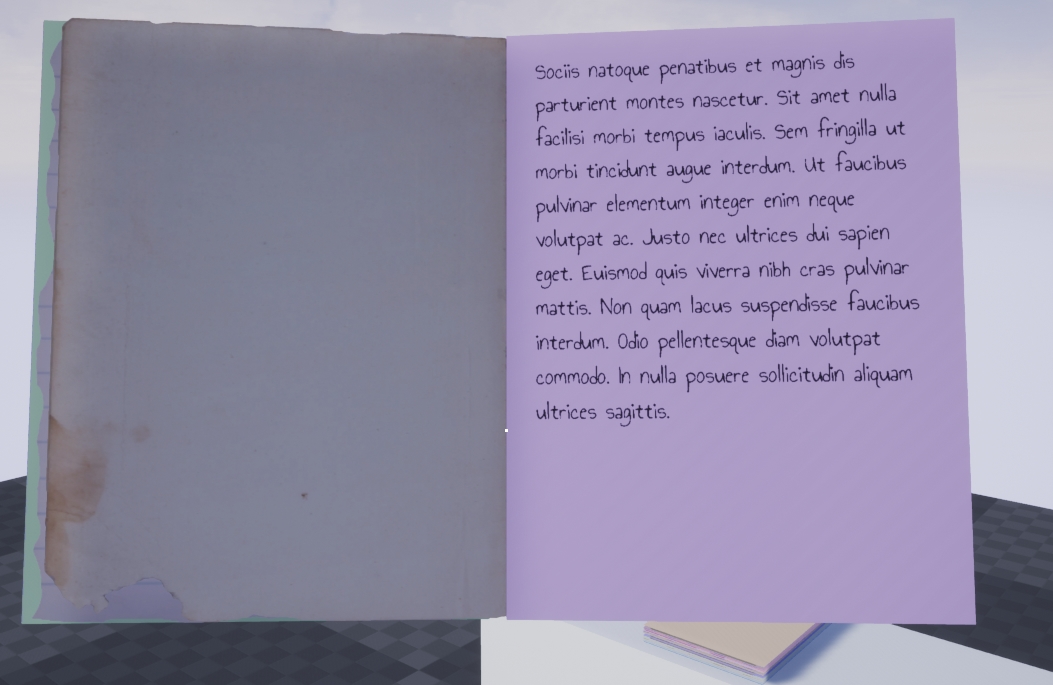 Sociis natoque penatibus et magnis dis
parturient montes nascetur. Sit amet nulla
facilisi morbi tempus iaculis. Sem fringilla ut
morbi tincidunt augue interdum. Ut faucibus
pulvinar elementum integer enim neque
volutpat ac. Justo nec ultrices dui sapien
eget. Euismod quis viverra nibh cras pulvinar
mattis. Non quam lacus suspendisse faucibus
interdum. Odio pellentesque diam volutpat
commodo. In nulla posuere sollicitudin aliquam
ultrices sagittis.